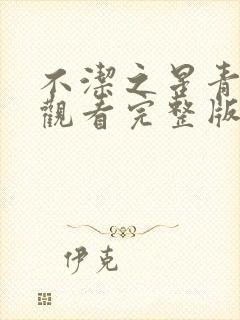 不潔之星青
觀看完整版
伊克